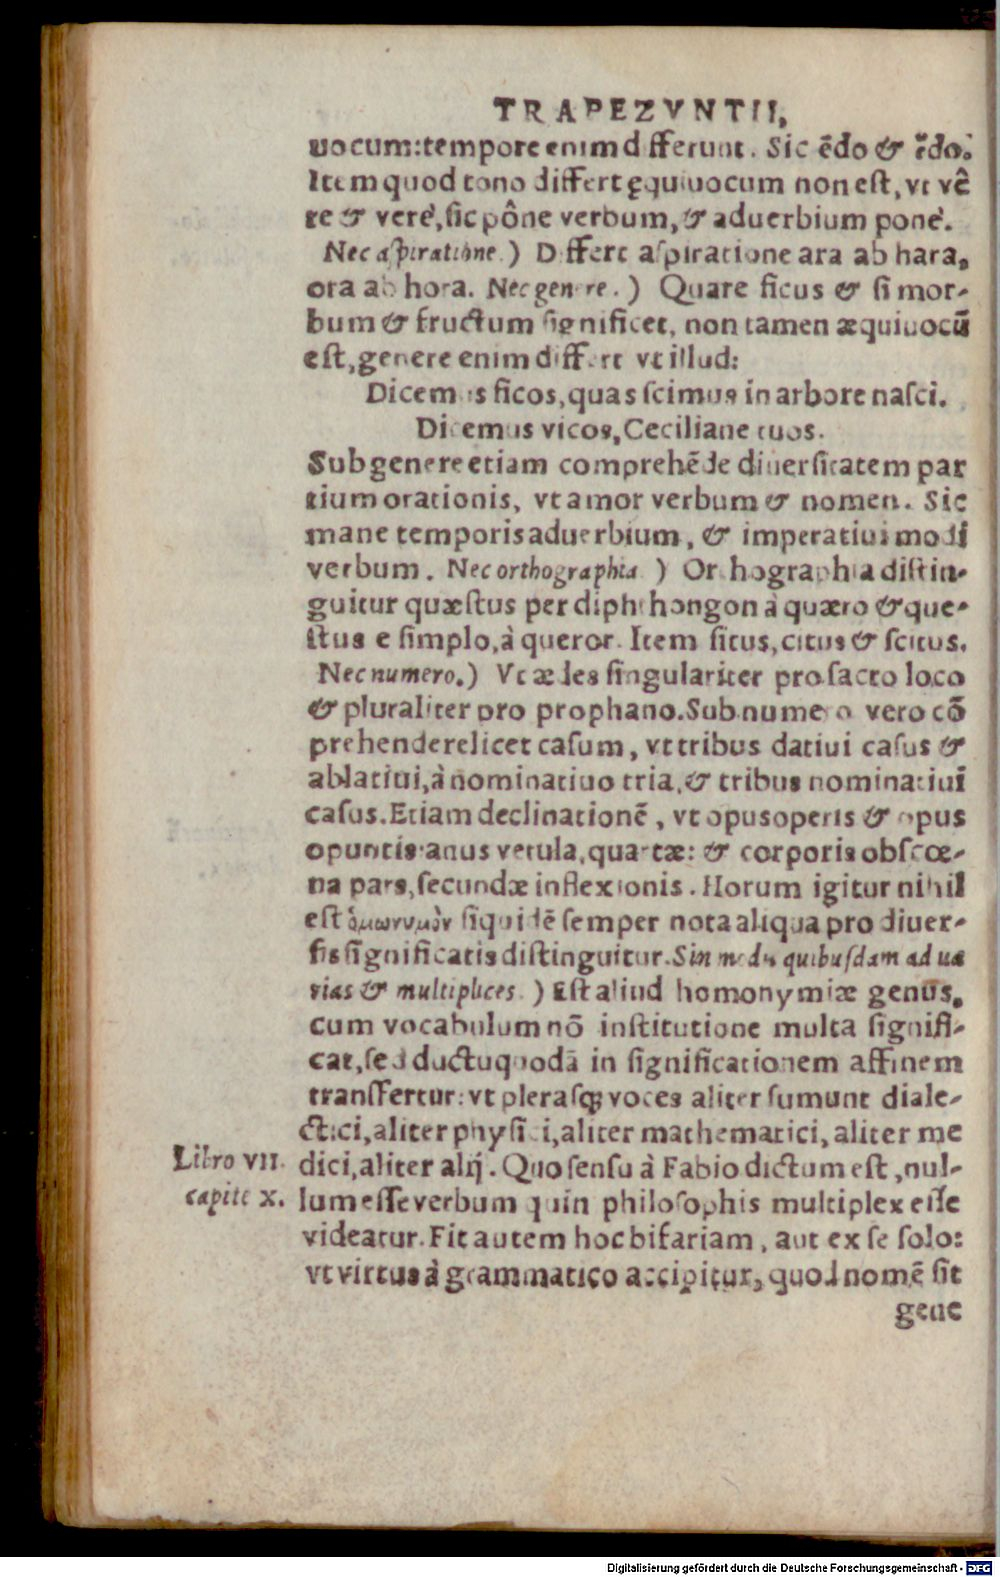 TRAPEZVNTII,
uocum: tempore enim differunt. Sic ēdo & ĕdo.
Item quod tono differt ęquiuocum non est, vt vê
re & verè, sic pône verbum, & aduerbium ponè.
Nec aspiratione.) Differt aspiratione ara ab hara,
ora ab hora. Nec genere.) Quare ficus & si mor-
bum & fructum significet, non tamen æquiuocũ
est, genere enim differt vt illud:
Dicemus ficos, quas scimus in arbore nasci.
Dicemus vicos, Ceciliane tuos.
Sub genere etiam comprehẽde diuersitatem par
tium orationis, vt amor verbum & nomen. Sic
mane temporis aduerbium, & imperatiui modi
verbum. Nec orthographia.) Orthographia distin-
guitur quæstus per diphthongon à quæro & que-
stus e simplo, à queror. Item situs, citus & scitus.
Nec numero.) Vt ædes singulariter pro sacro loco
& pluraliter pro prophano. Sub numero vero cõ
prehendere licet casum, vt tribus datiui casus &
ablatiui, à nominatiuo tria, & tribus nominatiui
casus. Etiam declinationẽ, vt opus operis & opus
opuntis: anus vetula, quartæ: & corporis obscœ-
na pars, secundæ inflexionis. Horum igitur nihil
est ὁμωνυμὸν siquidẽ semper nota aliqua pro diuer-
sis significatis distinguitur. Sin modis quibusdam ad ua
rias & multiplices.) Est aliud homonymiæ genus,
cum vocabulum nõ institutione multa signifi-
cat, sed ductu quodã in significationem affinem
transfertur: vt plerasq; voces aliter sumunt diale-
ctici, aliter physici, aliter mathematici, aliter me
Libro VII. dici, aliter alij. Quo sensu à Fabio dictum est, nul-
capite X. lum esse verbum quin philosophis multiplex esse
videatur. Fit autem hoc bifariam, aut ex se solo:
vt virtus à grammatico accipitur, quod nomẽ sit
gene
Digitalisierung gefördert durch die Deutsche Forschungsgemeinschaft - DFG